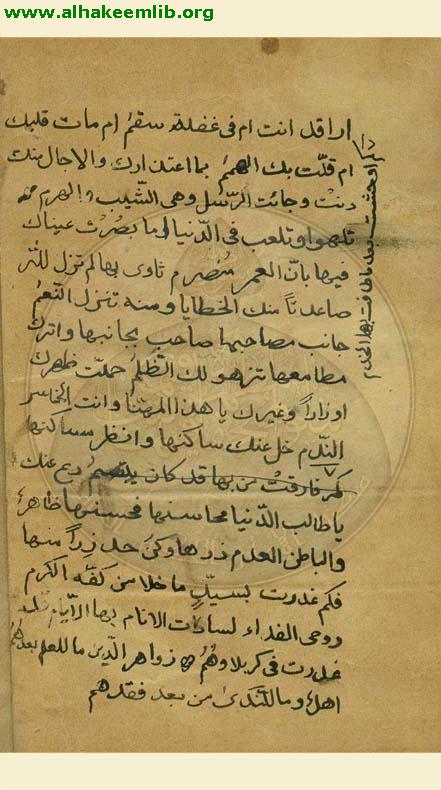 www.alhakeemlib.org
اراقد انت ام فى غفلة سقم ام مات قلبك
ام قلّت بك الهمم بما اعتذارك والاجال منك
دنت وجائت الرّسل وهى الشّيب والهرم
تلهوا وتلعب فى الدّنيا اما بصُرَت عيناك
فيها بانّ العمر منصرم تاوى بها لم تزل للشر
صاعدتاً منك الخطايا ومنه تنزل النّعم
جانب مصاحبها صاحب بجانبها واترك
مطامعها تزهو لك الظُلَم حملت ظهرك
اوزاراً وغيرك يا هذا المهنّا وانت الخاسر
النّدم خل عنك ساكنها وانظر مساكنها
كم فارقت من بها قد كان دع عنك
يا طالب الدّنيا محاسنها فحسنها ظاهرة
والباطن العدم ذرها وكن حذراً منها
فكم غدرت بسيّد ما خلا من كفّه الكرم
روحى الفداء لسادات الانام بها الايام
غدرت فى كربلا وهُمُ زواهر الدّين ما للعلم بعدهُمُ
اهل وما للنّدى من بعد فقدهم
اوحشت بعد ما طافت بها الخدم